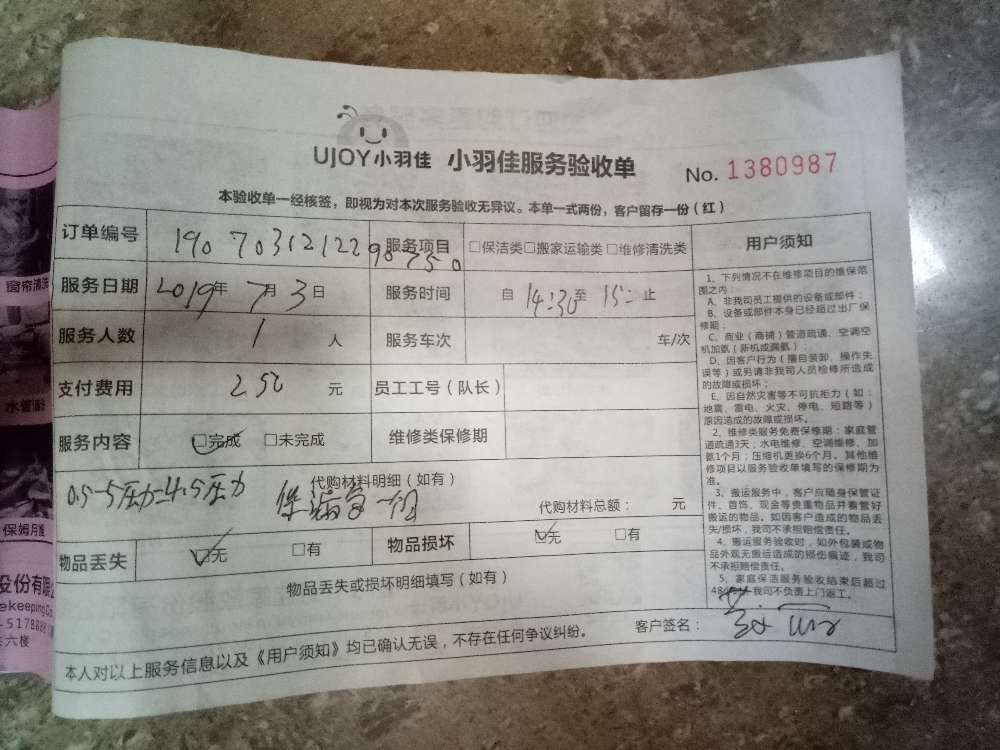 UJOY小羽佳 小羽佳服务验收单 No. 1380987
本验收单一经核签，即视为对本次服务验收无异议。本单一式两份，客户留存一份（红）
订单编号 190703121229 服务项目 □保洁类□搬家运输类□维修清洗类
服务日期 2019年7月3日 服务时间 自14:30至15:止
服务人数 1 人 服务车次 车/次
支付费用 250 元 员工工号（队长）
服务内容 □完成 □未完成 维修类保修期
代购材料明细（如有）
0.5-5压力-4.5压力
代购材料总额： 元
物品丢失 □无 □有 物品损坏 □无 □有
物品丢失或损坏明细填写（如有）
客户签名：
本人对以上服务信息以及《用户须知》均已确认无误，不存在任何争议纠纷。
用户须知
1、下列情况不在维修项目的维保范
围之内：
A、非我司员工提供的设备或部件；
B、设备或部件本身已经超过出厂保
修期；
C、商业（商铺）管道疏通、空调空
机加氨（新机或漏氨）；
D、因客户行为（擅自装卸、操作失
误等）或另请非我司人员检修所造成
的故障或损坏；
E、因自然灾害等不可抗拒力（如：
地震、雷电、火灾、停电、短路等）
原因造成的故障或损坏。
2、维修类服务免费保修期：家庭管
道疏通3天；水电维修、空调维修、加
氨1个月；压缩机更换6个月。其他维
修项目以服务验收单填写的保修期为
准。
3、搬运服务中，客户应随身保管证
件、首饰、现金等贵重物品并看管好
搬运的物品。如因客户造成的物品丢
失/损坏，我司不承担赔偿责任。
4、搬运服务验收时，如外包装或物
品外观无搬运造成的损伤痕迹，我司
不承担赔偿责任。
5、家庭保洁服务验收结束后超过
48小时，我司不负责上门返工。
窗帘清洗
保姆月嫂
股份有限
ekeeping Co.
-5178888
六楼